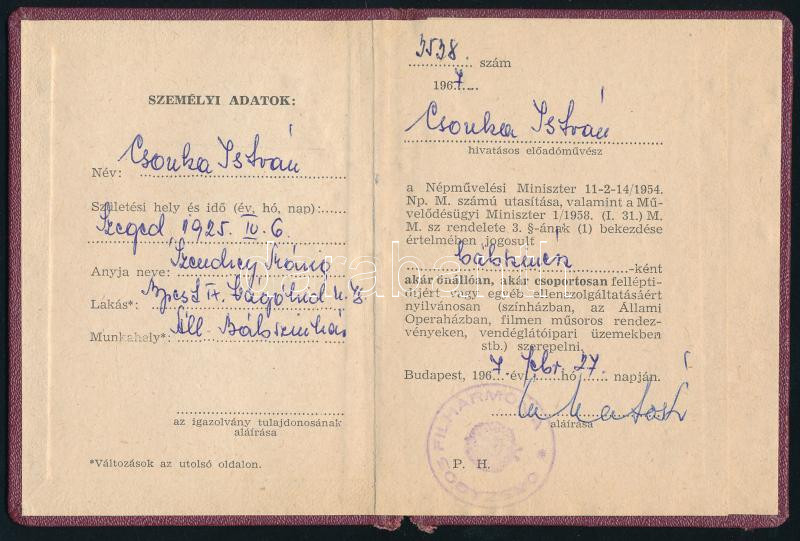 SZEMÉLYI ADATOK:
Név: Csonka István
Születési hely és idő (év, hó, nap):
Szeged, 1925. IV. 6.
Anyja neve: Szendrey Mária
Lakás*: Bpest IX. Vágóhíd u.
Munkahely*: Áll. Bábszínház
az igazolvány tulajdonosának
aláírása
*Változások az utolsó oldalon.
3538. szám
1967.
Csonka István
hivatásos előadóművész
a Népművelési Miniszter 11-2-14/1954.
Np. M. számú utasítása, valamint a Mű-
velődésügyi Miniszter 1/1958. (I. 31.) M.
M. sz rendelete 3. §-ának (1) bekezdése
értelmében jogosult
bábszínész -ként
akár önállóan, akár csoportosan fellépti-
díjért vagy egyéb ellenszolgáltatásáért
nyilvánosan (színházban, az Állami
Operaházban, filmen műsoros rendez-
vényeken, vendéglátóipari üzemekben
stb.) szerepelni.
Budapest, 1967 évi febr. hó 27. napján.
aláírása
P. H.
ORSZÁGOS FILHARMÓNIA
darabanth